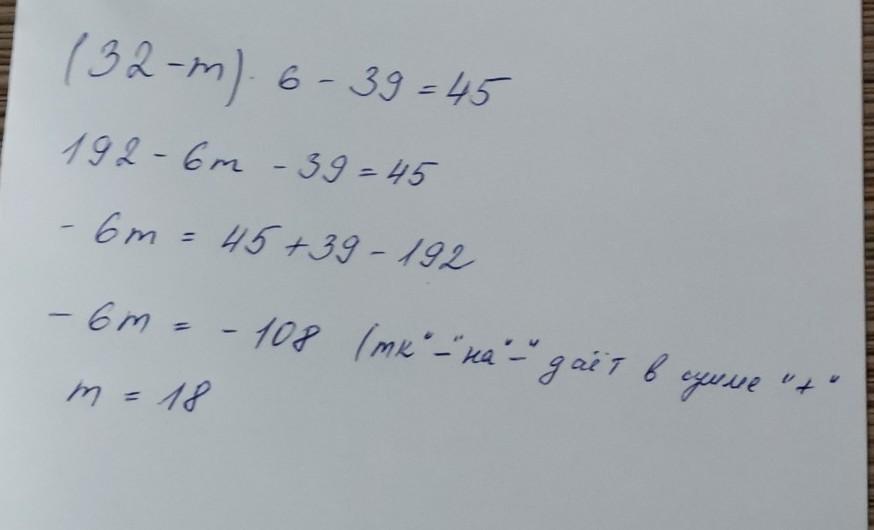 (32-m)· 6 - 39 = 45
192 - 6m - 39 = 45
- 6m = 45 + 39 - 192
- 6m = - 108 (тк "-" на "-" даёт в сумме "+"
m = 18